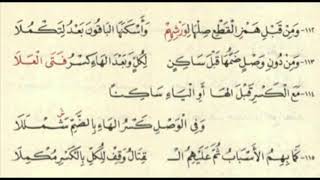 ١١٢- وَمِنْ قَبْلِ هَمْزِ الْقَطْعِ صِلْهَا لِوَرْشِهِمْ وَأَسْكَنَهَا الْبَاقُونَ بَعْدُ لِتَكْمُلَا
١١٣- وَمِنْ دُونِ وَصْلٍ ضَمُّهَا قَبْلَ سَاكِنٍ لِكُلٍّ وَبَعْدَ الْهَاءِ كَسْرُ فَتَى الْعَلَا
١١٤- مَعَ الْكَسْرِ قَبْلَ الْهَا أَوِ الْيَاءِ سَاكِنًا
وَفِي الْوَصْلِ كَسْرُ الْهَاءِ بِالضَّمِّ شَمْلَلَا
١١٥- كَمَا بِهِمُ الْأَسْبَابُ ثُمَّ عَلَيْهِمُ الْـ قِتَالُ وَقِفْ لِلْكُلِّ بِالْكَسْرِ مُكْمِلَا